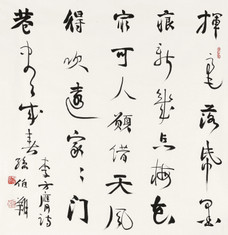 揮毫落紙墨
痕新幾点梅花
最可人願借天風
得吹遠家々門
巷尽成春
李方膺詩
孫伯翔